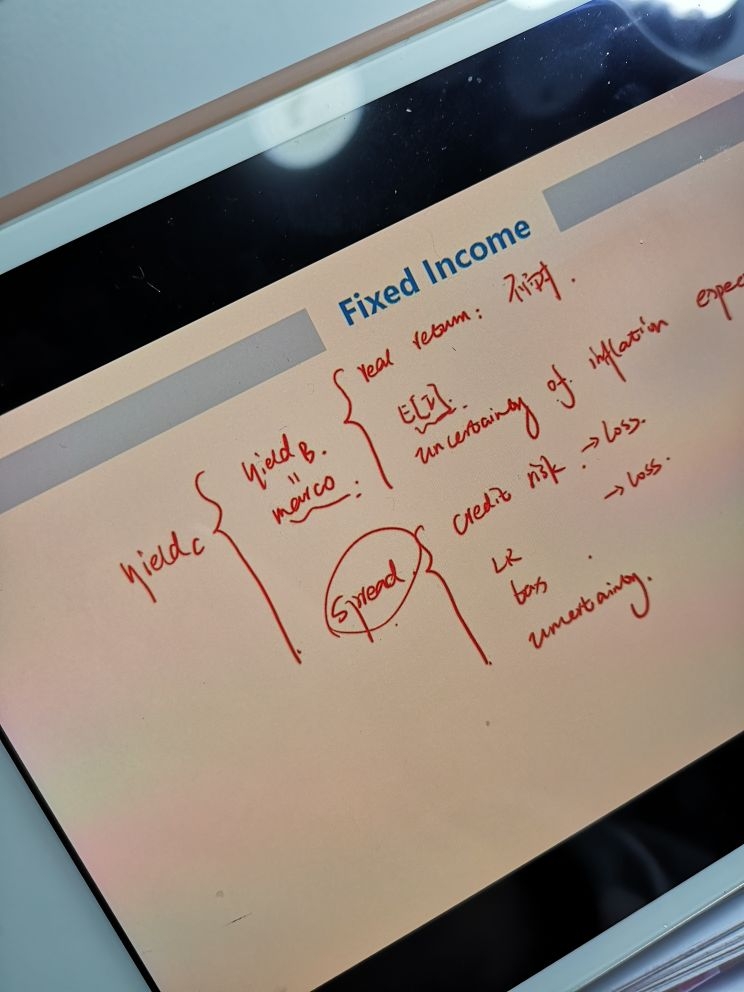 Fixed Income
real return:
E[π].
uncertainty of inflation expec
yield B.
=
marco :
yield c
credit risk : → loss.
→ loss.
spread.
LR
tax
uncertainty.